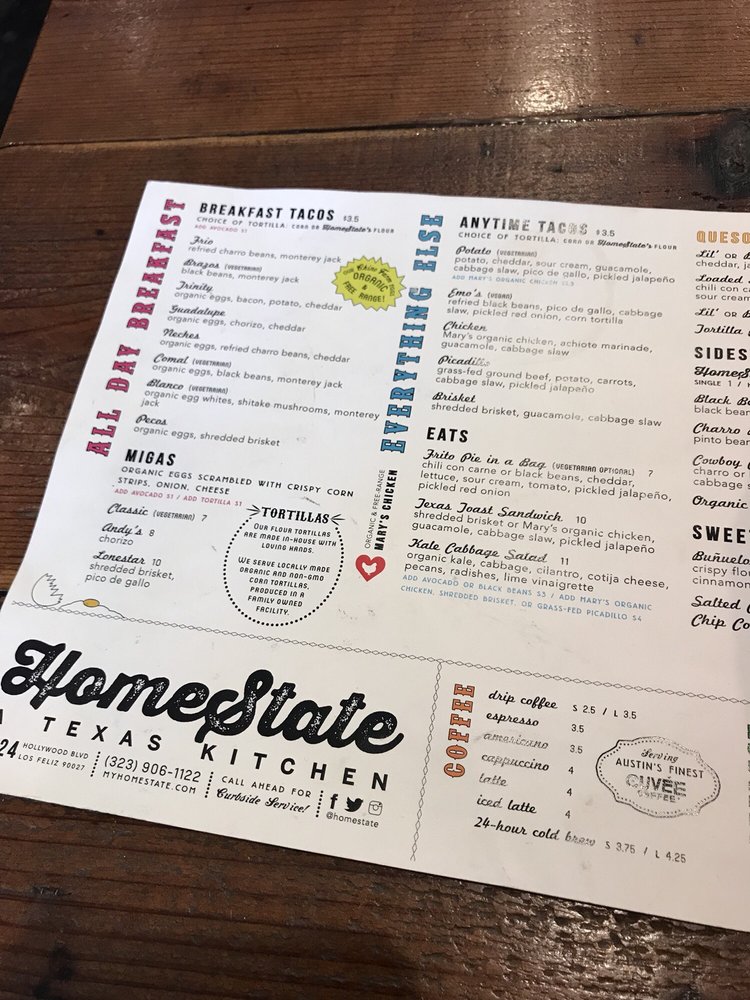 ALL DAY BREAKFAST
BREAKFAST TACOS $3.5
CHOICE OF TORTILLA: CORN OR HomeState's FLOUR
ADD AVOCADO $1
Frio
refried charro beans, monterey jack
Brazos (VEGETARIAN)
black beans, monterey jack
Trinity
organic eggs, bacon, potato, cheddar
Guadalupe
organic eggs, chorizo, cheddar
Neches
organic eggs, refried charro beans, cheddar
Comal (VEGETARIAN)
organic eggs, black beans, monterey jack
Blanco (VEGETARIAN)
organic egg whites, shitake mushrooms, monterey
jack
Pecos
organic eggs, shredded brisket
ORGANIC
&
FREE RANGE!
MIGAS
ORGANIC EGGS SCRAMBLED WITH CRISPY CORN
STRIPS, ONION, CHEESE
ADD AVOCADO $1 / ADD TORTILLA $1
Classic (VEGETARIAN) 7
Andy's 8
chorizo
Lonestar 10
shredded brisket,
pico de gallo
TORTILLAS
OUR FLOUR TORTILLAS
ARE MADE IN-HOUSE WITH
LOVING HANDS.
WE SERVE LOCALLY MADE
ORGANIC AND NON-GMO
CORN TORTILLAS,
PRODUCED IN A
FAMILY OWNED
FACILITY.
EVERYTHING ELSE
ORGANIC & FREE-RANGE
MARY'S CHICKEN
ANYTIME TACOS $3.5
CHOICE OF TORTILLA: CORN OR HomeState's FLOUR
Potato (VEGETARIAN)
potato, cheddar, sour cream, guacamole,
cabbage slaw, pico de gallo, pickled jalapeño
ADD MARY'S ORGANIC CHICKEN
Emo's (VEGAN)
refried black beans, pico de gallo, cabbage
slaw, pickled red onion, corn tortilla
Chicken
Mary's organic chicken, achiote marinade,
guacamole, cabbage slaw
Picadillo
grass-fed ground beef, potato, carrots,
cabbage slaw, pickled jalapeño
Brisket
shredded brisket, guacamole, cabbage slaw
EATS
Frito Pie in a Bag (VEGETARIAN OPTIONAL) 7
chili con carne or black beans, cheddar,
lettuce, sour cream, tomato, pickled jalapeño,
pickled red onion
Texas Toast Sandwich 10
shredded brisket or Mary's organic chicken,
guacamole, cabbage slaw, pickled jalapeño
Kale Cabbage Salad 11
organic kale, cabbage, cilantro, cotija cheese,
pecans, radishes, lime vinaigrette
ADD AVOCADO OR BLACK BEANS $3 / ADD MARY'S ORGANIC
CHICKEN, SHREDDED BRISKET, OR GRASS-FED PICADILLO $4
QUESO
Lil' OR
cheddar,
Loaded
chili con
sour cream
Lil' OR
Tortilla
SIDES
SINGLE 1 /
Black
black
Charro
pinto
Cowboy
charro or
cabbage
Organic
SWEE
Buñuelo
crispy
cinnamon
Salted
Chip
HomeState
A TEXAS KITCHEN
24 HOLLYWOOD BLVD
LOS FELIZ 90027
(323) 906-1122
MYHOMESTATE.COM
CALL AHEAD FOR
Curbside Service!
@homestate
COFFEE
drip coffee S 2.5 / L 3.5
espresso 3.5
americano 3.5
cappuccino 4
latte 4
iced latte 4
24-hour cold brew S 3.75 / L 4.25
Serving
AUSTIN'S FINEST
CUVÉE
COFFEE